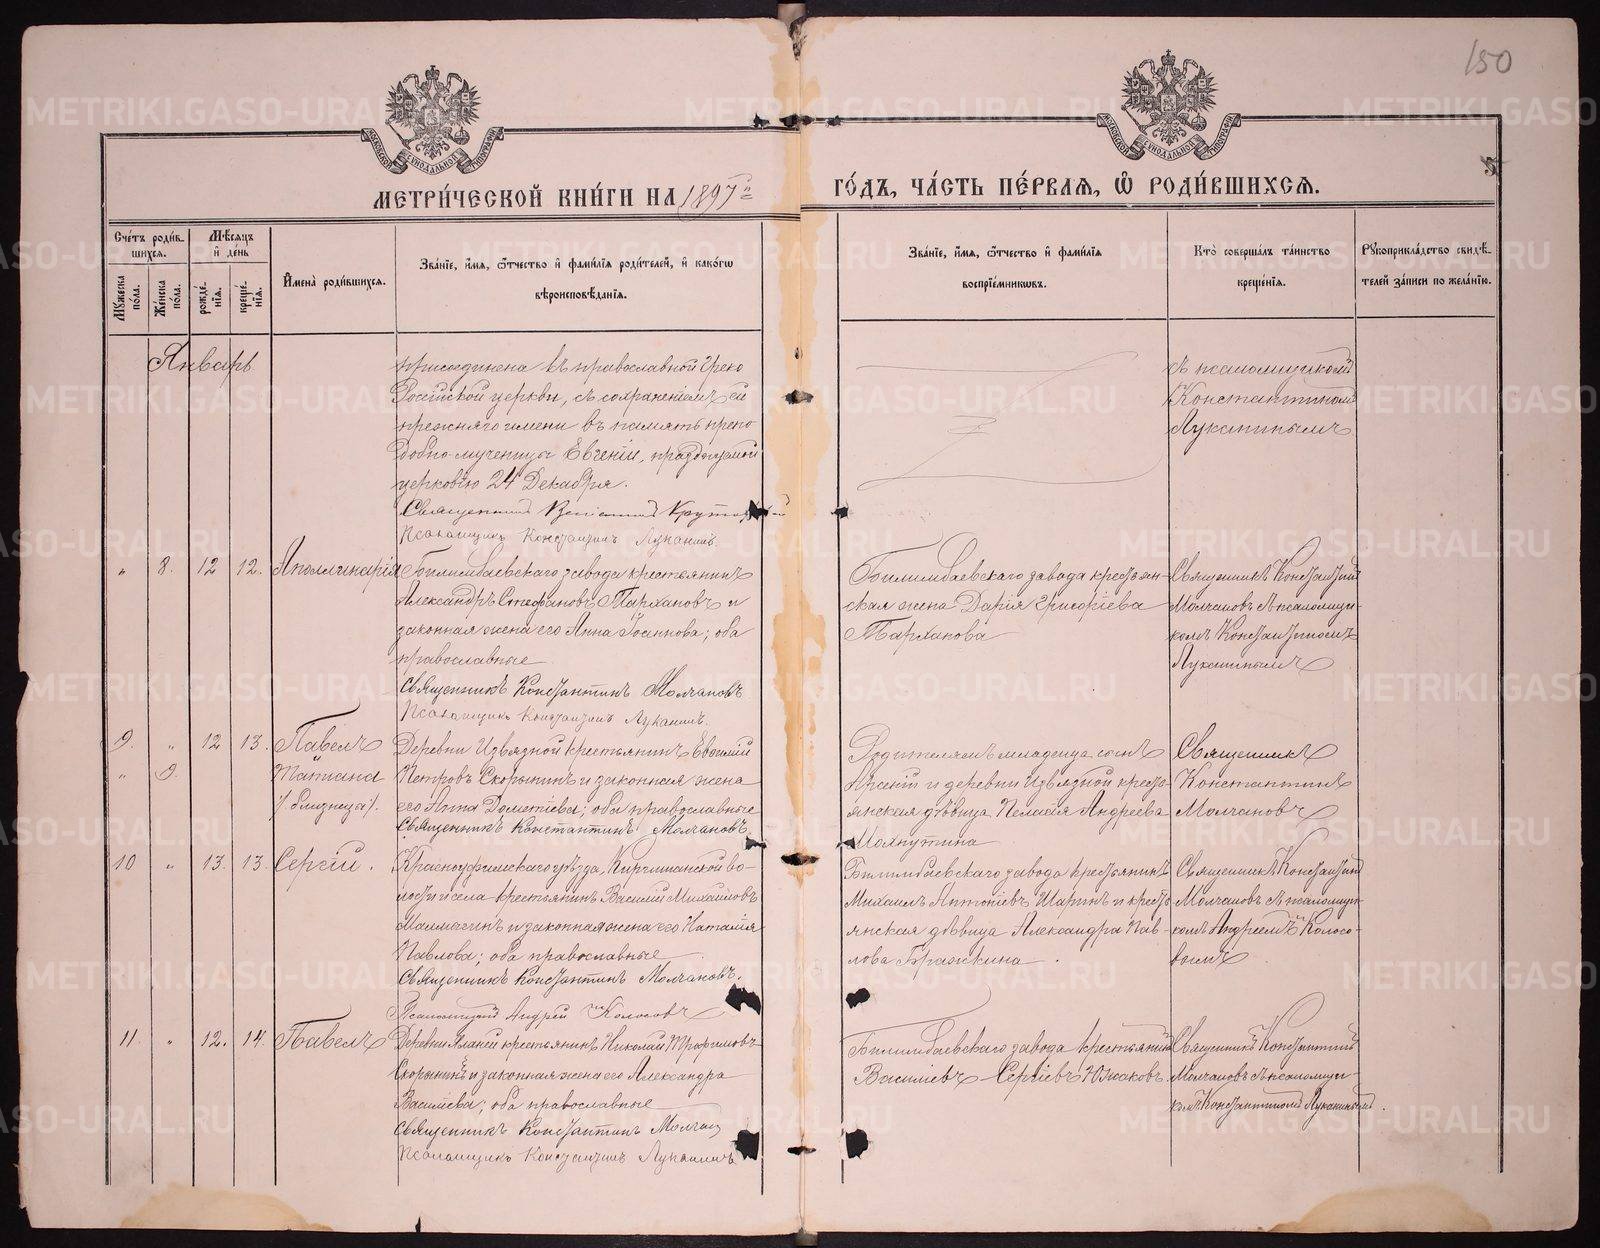 150
МОСКОВСКОЙ СУНОДАЛЬНОЙ ТИПОГРАФІИ
МОСКОВСКОЙ СУНОДАЛЬНОЙ ТИПОГРАФІИ
МЕТРИ́ЧЕСКОЙ КНИ́ГИ НА 1897 й
ГО́ДЪ, ЧА́СТЬ ПЕ́РВАѦ, Ѡ҆ РОДИ́ВШИХСѦ.
Сче́тъ роди́в-
шихсѧ.
Мѣ́сѧцъ
и҆ де́нь
Мꙋ́жеска
по́ла.
Же́нска
по́ла.
рожде́-
нїѧ.
креще́-
нїѧ.
И҆мена̀ роди́вшихсѧ.
Зва́нїе, и҆́мѧ, ѻ҆́тчество и҆ фами́лїѧ роди́телей, и҆ како́гѡ
вѣроисповѣ́данїѧ.
Зва́нїе, и҆́мѧ, ѻ҆́тчество и҆ фами́лїѧ
воспрїе́мникѡвъ.
Кто̀ соверша́лъ та́инство
креще́нїѧ.
Рꙋкоприкла́дство свидѣ́-
телей за́писи по жела́нїю.
Январь
присоединена къ православной Греко
Россійской церкви, съ сохраненіемъ ей
прежняго имени въ память препо
добно-мученицы Евгеніи, празднуемой
церковію 24 Декабря.
Священникъ
Псаломщикъ Константинъ Луканинъ.
съ псаломщикомъ
Константиномъ
Луканинымъ
" 8. 12 12. Аполлинарія
Билимбаевскаго завода крестьянинъ
Александръ Стефановъ Тархановъ и
законная жена его Анна Іоаннова; оба
православные
Священникъ Константинъ Молчановъ.
Псаломщикъ Константинъ Луканинъ.
Билимбаевскаго завода крестьян-
ская жена Дарія Григоріева
Тарханова
Священникъ Константинъ
Молчановъ съ псаломщи-
комъ Константиномъ
Луканинымъ
9. " 12 13. Павелъ
" 9. Татіана
/близнецы/.
Деревни Извязной крестьянинъ Евѳимій
Петровъ Скорынинъ и законная жена
его Анна Дометіева; оба православные
Священникъ Константинъ Молчановъ.
Родителямъ младенца сынъ
и деревни Извязной кресть-
янская дѣвица Пелагія Андреева
Священникъ
Константинъ
Молчановъ
10 " 13. 13. Сергій.
Красноуфимскаго уѣзда, Киргишанской во-
лости и села крестьянинъ Василій Михаиловъ
и законная жена его Наталія
Павлова; оба православные
Священникъ Константинъ Молчановъ.
Псаломщикъ Андрей Колосовъ
Билимбаевскаго завода крестьянинъ
Михаилъ Антоніевъ Шаринъ и кресть
янская дѣвица Александра Пав-
лова Бражкина.
Священникъ Константинъ
Молчановъ съ псаломщи-
комъ Андреемъ Колосо-
вымъ
11. " 12. 14. Павелъ
Деревни крестьянинъ Николай Трофимовъ
Скорынинъ и законная жена его Александра
Василіева; оба православные
Священникъ Константинъ
Псаломщикъ Константинъ Луканинъ
Билимбаевскаго завода крестьянинъ
Василіевъ Сергіевъ Южаковъ
Священникъ Константинъ
Молчановъ съ псаломщи-
комъ Константиномъ Луканинымъ.
METRIKI.GASO-URAL.RU